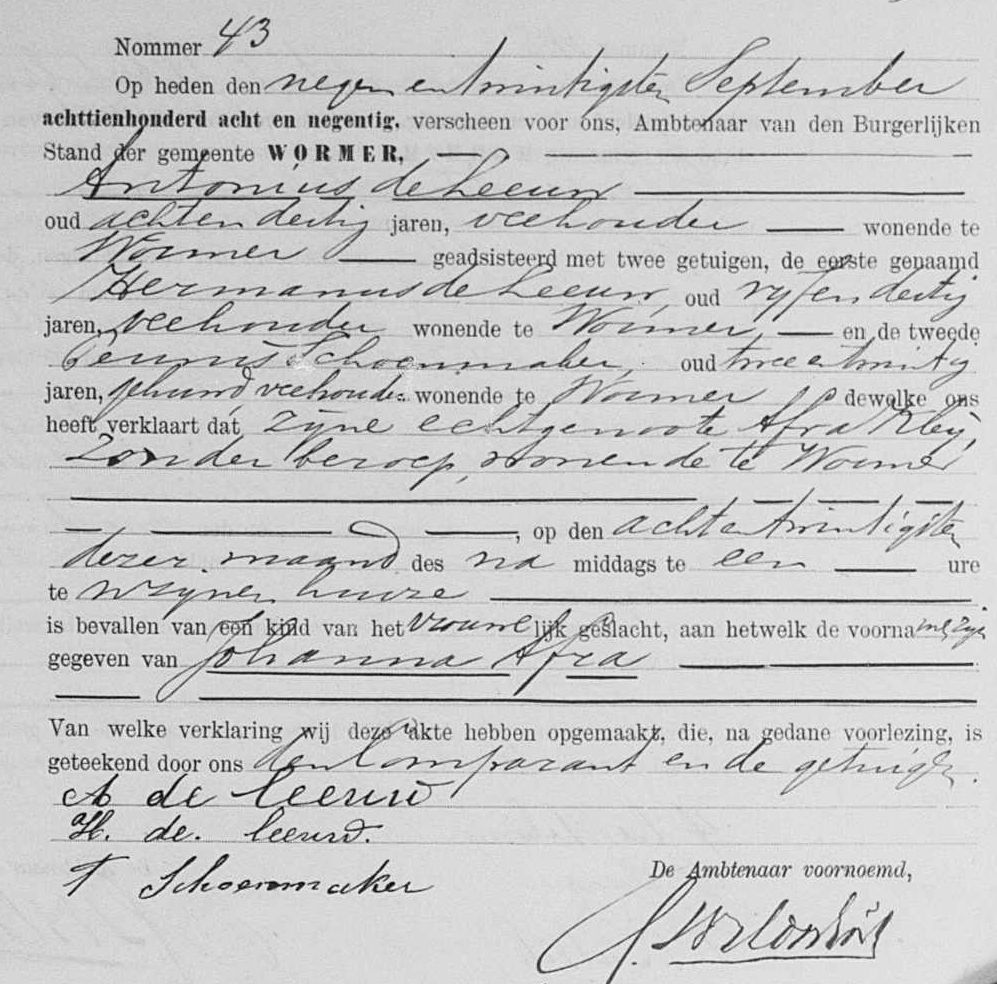 Nommer 43
Op heden den negenentwintigsten September
achttienhonderd acht en negentig, verscheen voor ons, Ambtenaar van den Burgerlijken
Stand der gemeente WORMER,
Antonius de Leeuw
oud achtendertig jaren, veehouder wonende te
Wormer geadsisteerd met twee getuigen, de eerste genaamd
Hermanus de Leeuw, oud vyfendertig
jaren, veehouder wonende te Wormer, en de tweede
Teunis Schoenmaker, oud tweeentwintig
jaren, gehuwd veehouder wonende te Wormer dewelke ons
heeft verklaart dat zyne echtgenoote Afra Kleij,
zonder beroep, wonende te Wormer
, op den achtentwintigsten
dezer maand des na middags te een ure
te wzynen huize
is bevallen van een kind van het vrouwelijk geslacht, aan hetwelk de voornamen zijn
gegeven van Johanna Afra
Van welke verklaring wij deze akte hebben opgemaakt, die, na gedane voorlezing, is
geteekend door ons den Comparant en de getuigen.
A de Leeuw
H. de. Leeuw.
T Schoenmaker
De Ambtenaar voornoemd,